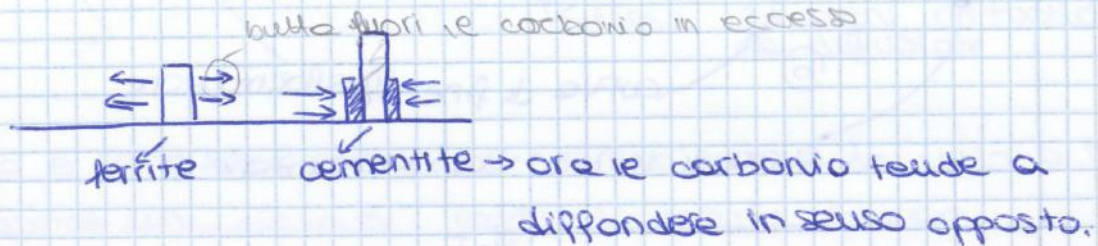 butta fuori il carbonio in eccesso
ferrite cementite → ora il carbonio tende a
diffondere in senso opposto.